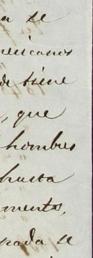 n se
mexicanos
de tiene
, que
hombres
hasta
mento,
nada se